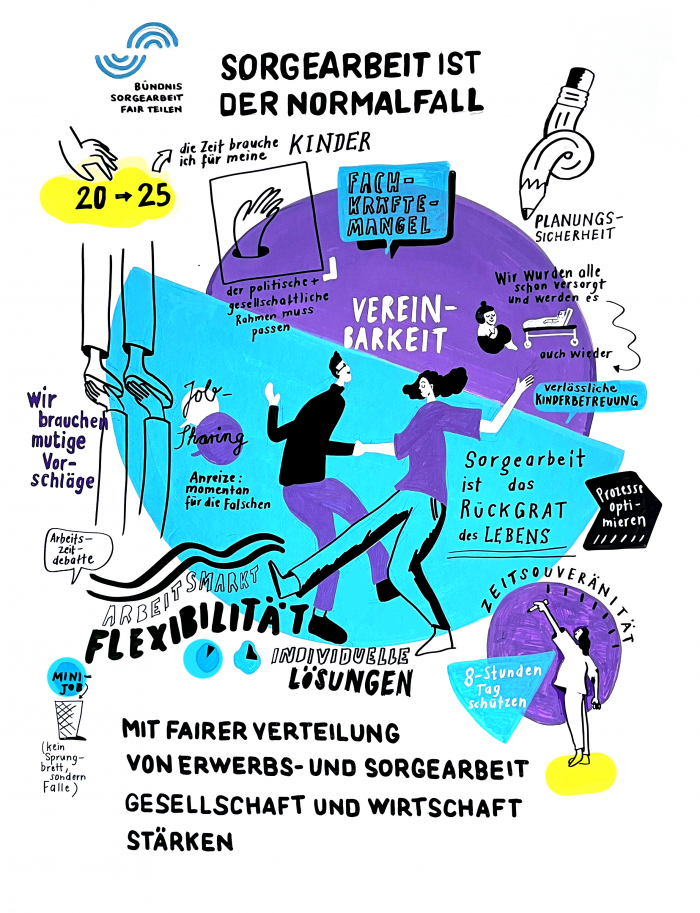 BÜNDNIS
SORGEARBEIT
FAIR TEILEN
SORGEARBEIT IST
DER NORMALFALL
die Zeit brauche
ich für meine KINDER
20 → 25
FACH-
KRÄFTE-
MANGEL
PLANUNGS-
SICHERHEIT
der politische +
gesellschaftliche
Rahmen muss
passen
VEREIN-
BARKEIT
Wir wurden alle
schon versorgt
und werden es
auch wieder
verlässliche
KINDERBETREUUNG
Wir
brauchen
mutige
Vor-
schläge
Job-
Sharing
Anreize:
momentan
für die Falschen
Sorgearbeit
ist das
RÜCKGRAT
des LEBENS
Prozesse
opti-
mieren
Arbeits-
zeit-
debatte
ARBEITSMARKT
FLEXIBILITÄT
INDIVIDUELLE
LÖSUNGEN
ZEITSOUVERÄNITÄT
8-Stunden
Tag
schützen
MINI-
JOB
(kein
Sprung-
brett,
sondern
Falle)
MIT FAIRER VERTEILUNG
VON ERWERBS- UND SORGEARBEIT
GESELLSCHAFT UND WIRTSCHAFT
STÄRKEN